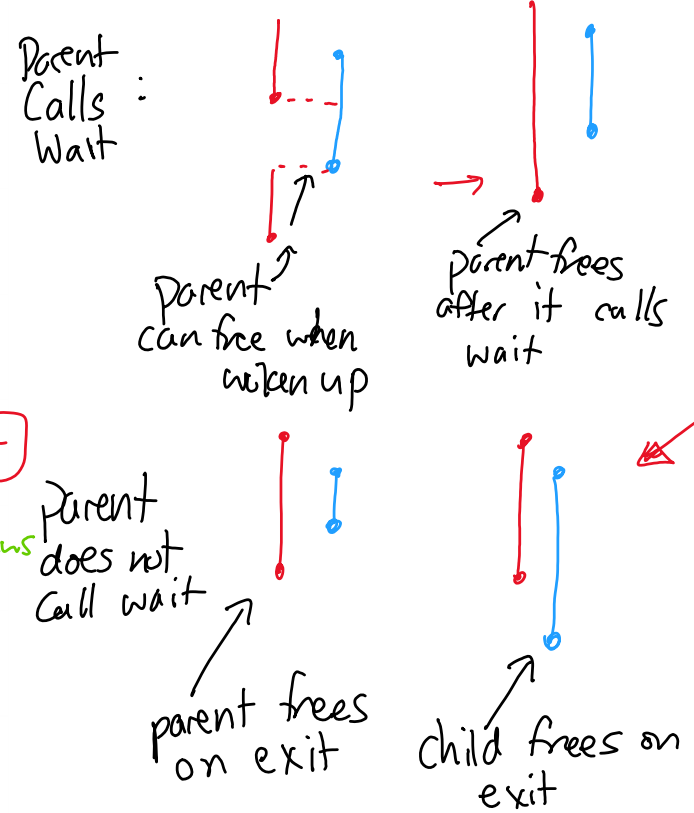 Parent
Calls :
Wait
parent
can free when
woken up
parent frees
after it calls
wait
parent
does not
call wait
parent frees
on exit
child frees on
exit